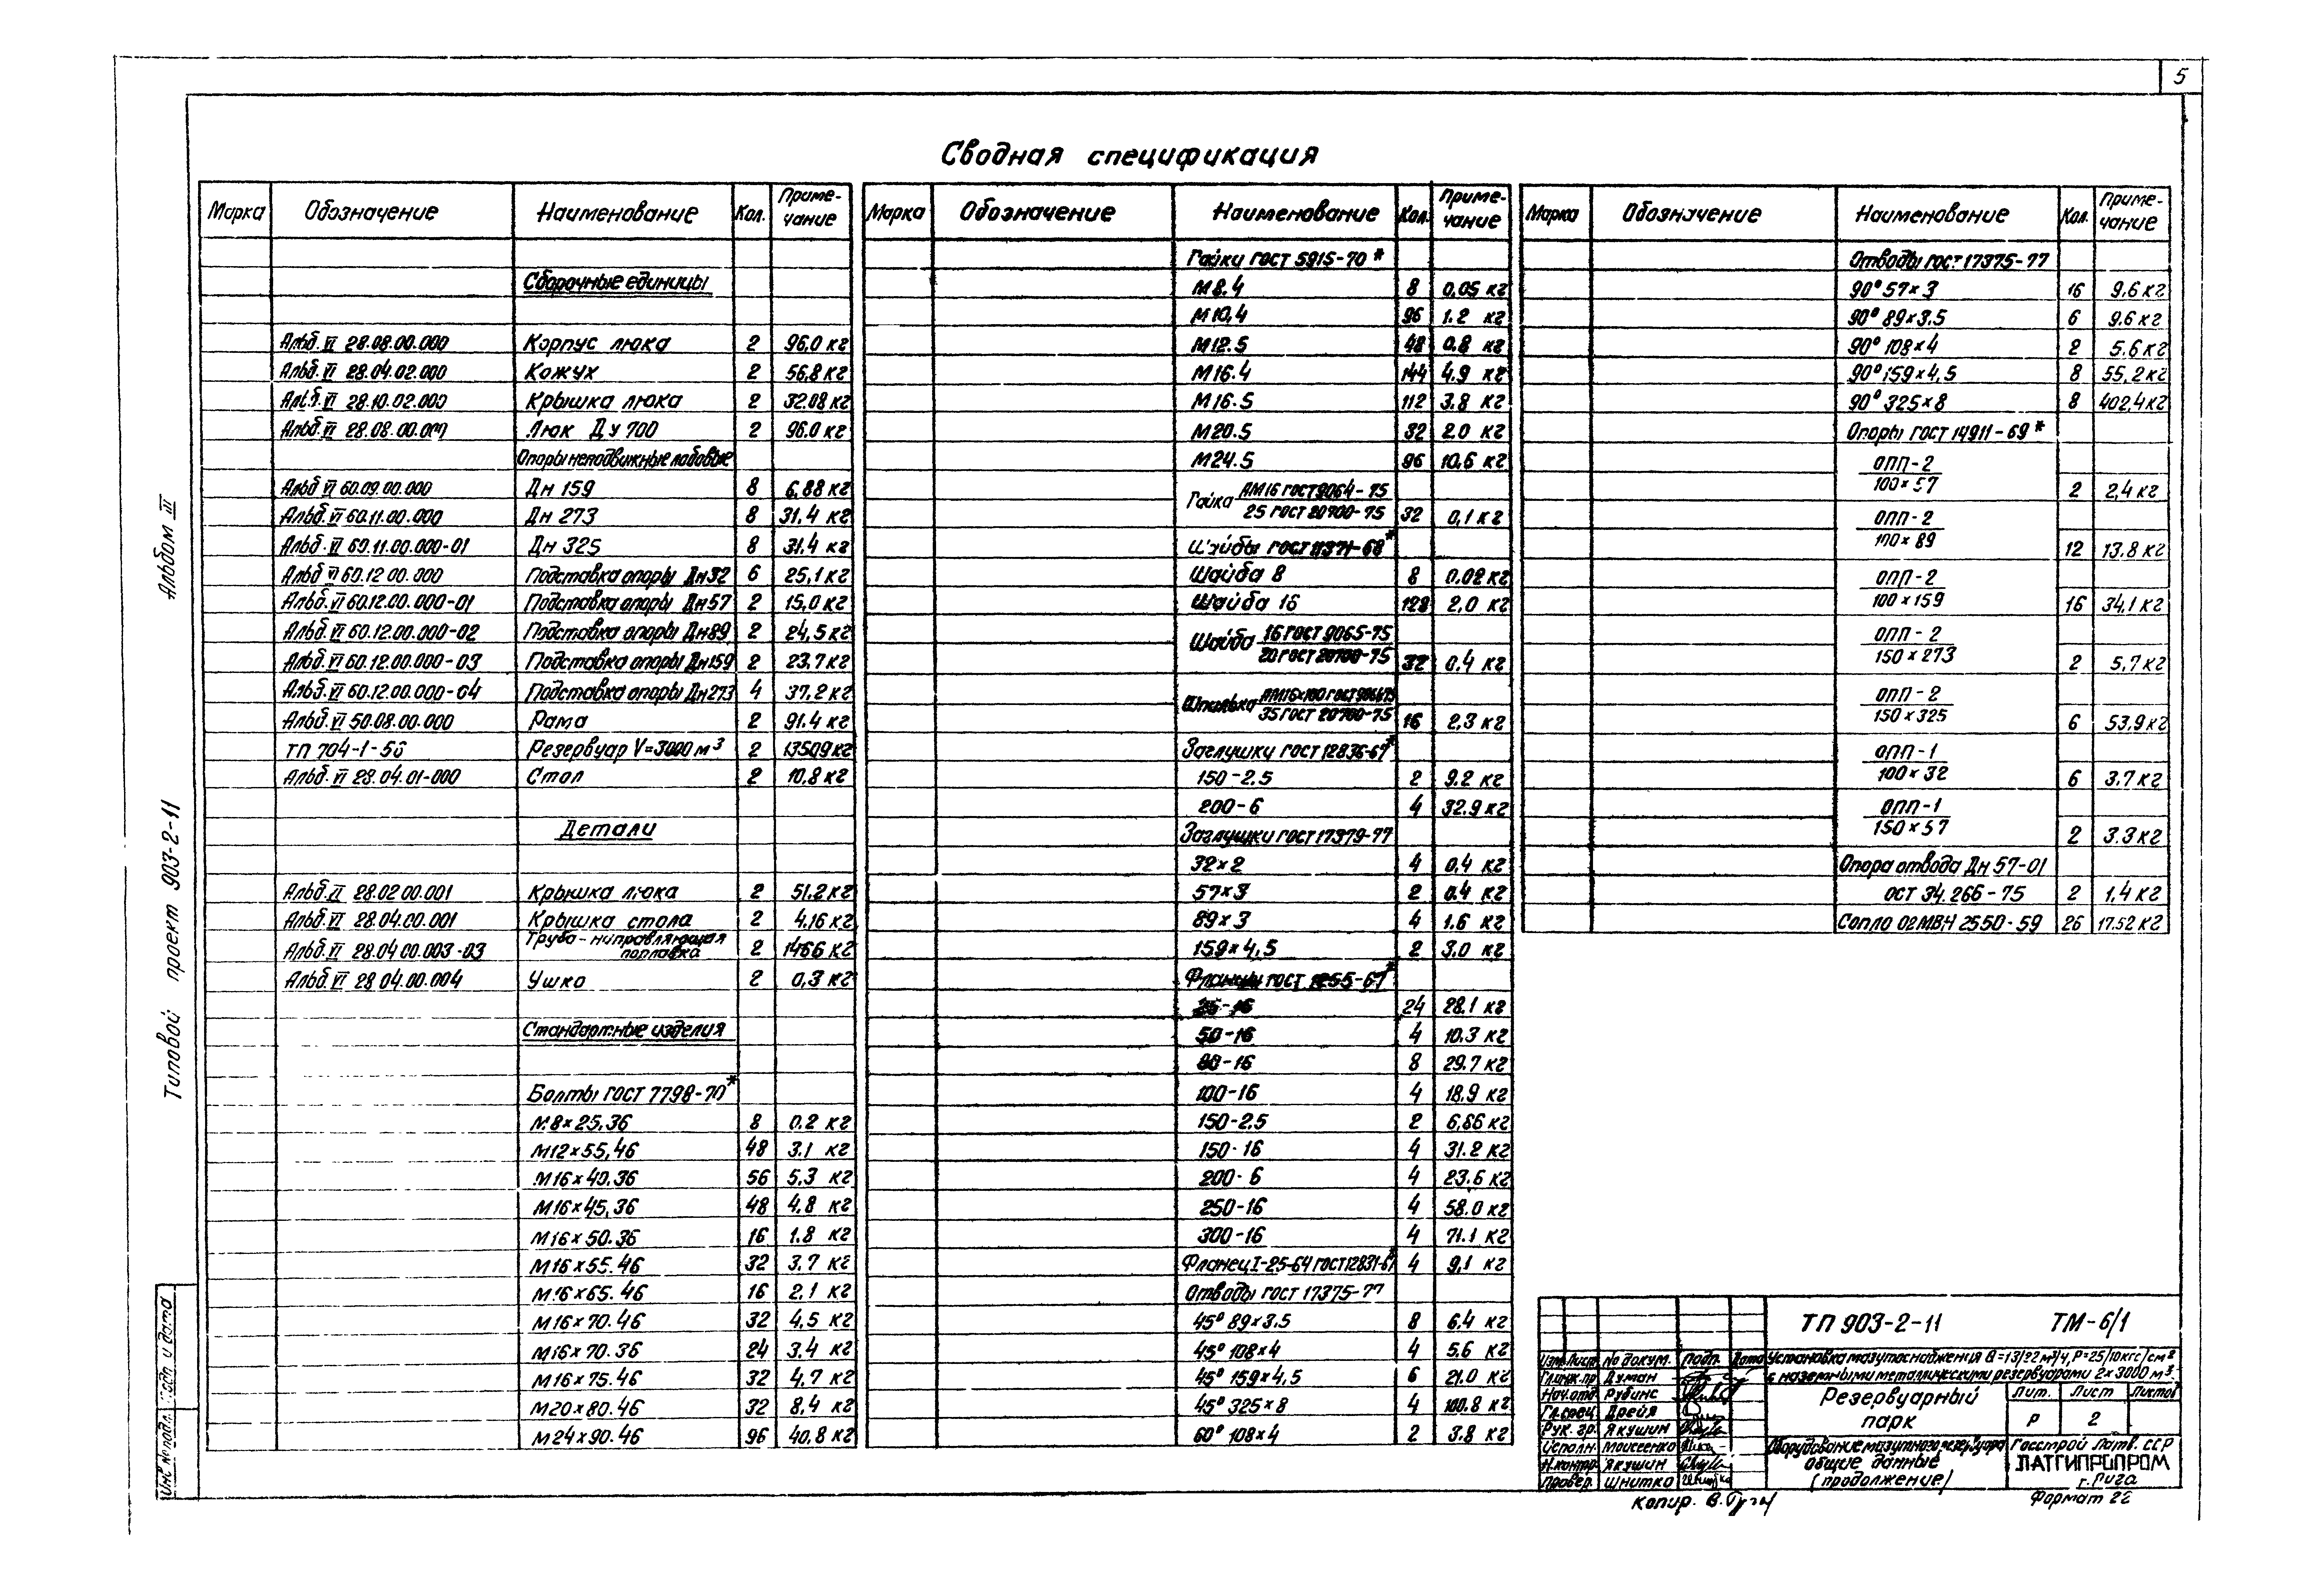 5
Сводная спецификация
Марка Обозначение Наименование Кол. Приме-чание
Сборочные единицы
Альб. VI 28.08.00.000 Корпус люка 2 96,0 кг
Альб. VI 28.04.02.000 Кожух 2 56,8 кг
Альб. VI 28.10.02.000 Крышка люка 2 32.08 кг
Альб. VI 28.08.00.000 Люк Ду 700 2 96.0 кг
Опоры неподвижные лобовые
Альб VI 60.09.00.000 Дн 159 8 6,88 кг
Альб. VI 60.11.00.000 Дн 273 8 31.4 кг
Альб. VI 60.11.00.000-01 Дн 325 8 31.4 кг
Альб VI 60.12 00.000 Подставка опоры Дн32 6 25,1 кг
Альб. VI 60.12.00.000-01 Подставка опоры Дн57 2 15,0 кг
Альб. VI 60.12.00.000-02 Подставка опоры Дн89 2 24,5 кг
Альб. VI 60.12.00.000-03 Подставка опоры Дн159 2 23,7 кг
Альб. VI 60.12.00.000-04 Подставка опоры Дн273 4 37.2 кг
Альб. VI 50.08.00.000 Рама 2 91.4 кг
ТП 704-1-56 Резервуар V=3000 м³ 2 13509 кг
Альб. VI 28.04.01-000 Стол 2 10,8 кг
Детали
Альб. VI 28.02 00.001 Крышка люка 2 51.2 кг
Альб. VI 28.04.00.001 Крышка стола 2 4,16 кг
Альб. VI 28.04 00.003-03 Труба-направляющая поплавка 2 1466 кг
Альб. VI 28 04.00.004 Ушко 2 0,3 кг
Стандартные изделия
Болты ГОСТ 7798-70*
М8×25,36 8 0.2 кг
М12×55,46 48 3.1 кг
М16×40.36 56 5.3 кг
М16×45,36 48 4,8 кг
М16×50.36 16 1.8 кг
М16×55.46 32 3.7 кг
М16×65.46 16 2.1 кг
М16×70.46 32 4,5 кг
М16×70.36 24 3.4 кг
М16×75.46 32 4,7 кг
М20×80.46 32 8,4 кг
М24×90.46 96 40,8 кг
Марка Обозначение Наименование Кол. Приме-чание
Гайки ГОСТ 5915-70*
М8.4 8 0,05 кг
М10,4 96 1.2 кг
М12.5 48 0.8 кг
М16.4 144 4.9 кг
М16.5 112 3.8 кг
М20.5 32 2.0 кг
М24.5 96 10,6 кг
Гайка АМ16 ГОСТ 9064-75
25 ГОСТ 20700-75 32 0,1 кг
Шайбы ГОСТ 11371-68*
Шайба 8 8 0.02 кг
Шайба 16 128 2,0 кг
Шайба 16 ГОСТ 9065-75
20 ГОСТ 20700-75 32 0,4 кг
Шпилька
35 ГОСТ 20700-75 16 2,3 кг
Заглушки ГОСТ 12836-67*
150-2.5 2 9.2 кг
200-6 4 32.9 кг
Заглушки ГОСТ 17379-77
32×2 4 0,4 кг
57×3 2 0.4 кг
89×3 4 1.6 кг
159×4,5 2 3.0 кг
Фланцы ГОСТ 1255-67*
25-16 24 28.1 кг
50-16 4 10.3 кг
80-16 8 29.7 кг
100-16 4 18.9 кг
150-2.5 2 6,86 кг
150-16 4 31.2 кг
200-6 4 23.6 кг
250-16 4 58.0 кг
300-16 4 71.1 кг
Фланец I-25-64 ГОСТ 12831-67* 4 9,1 кг
Отводы ГОСТ 17375-77
45° 89×3.5 8 6.4 кг
45° 108×4 4 5.6 кг
45° 159×4,5 6 21.0 кг
45° 325×8 4 100.8 кг
60° 108×4 2 3.8 кг
Марка Обозначение Наименование Кол. Приме-чание
Отводы ГОСТ 17375-77
90° 57×3 16 9,6 кг
90° 89×3.5 6 9.6 кг
90° 108×4 2 5.6 кг
90° 159×4,5 8 55,2 кг
90° 325×8 8 402,4 кг
Опоры ГОСТ 14911-69*
ОПП-2
100×57 2 2,4 кг
ОПП-2
100×89 12 13.8 кг
ОПП-2
100×159 16 34,1 кг
ОПП-2
150×273 2 5,7 кг
ОПП-2
150×325 6 53,9 кг
ОПП-1
100×32 6 3.7 кг
ОПП-1
150×57 2 3.3 кг
Опора отвода Дн 57-01
ОСТ 34.266-75 2 1,4 кг
Сопло 02МВН 2550-59 26 17.52 кг
Альбом III
Типовой проект 903-2-11
Инв № подл. Подп. и дата
ТП 903-2-11 ТМ-6/1
Изм. Лист № докум. Подп. Дата
Установка мазутоснабжения Q=13/22 м³/ч, Р=25/10кгс/см²
с наземными металлическими резервуарами 2×3000 м³.
Гл.инж.пр Думан
Нач.отд Рубинс
Гл.спец Дрейя
Рук. гр. Якушин
Исполн. Моисеенко
Н.контр. Якушин
Провер. Шнитко
Резервуарный парк
Лит. Лист Листов
Р 2
Оборудование мазутного резервуара
общие данные
(продолжение)
Госстрой Латв. ССР
ЛАТГИПРОПРОМ
г. Рига
Копир. Формат 22